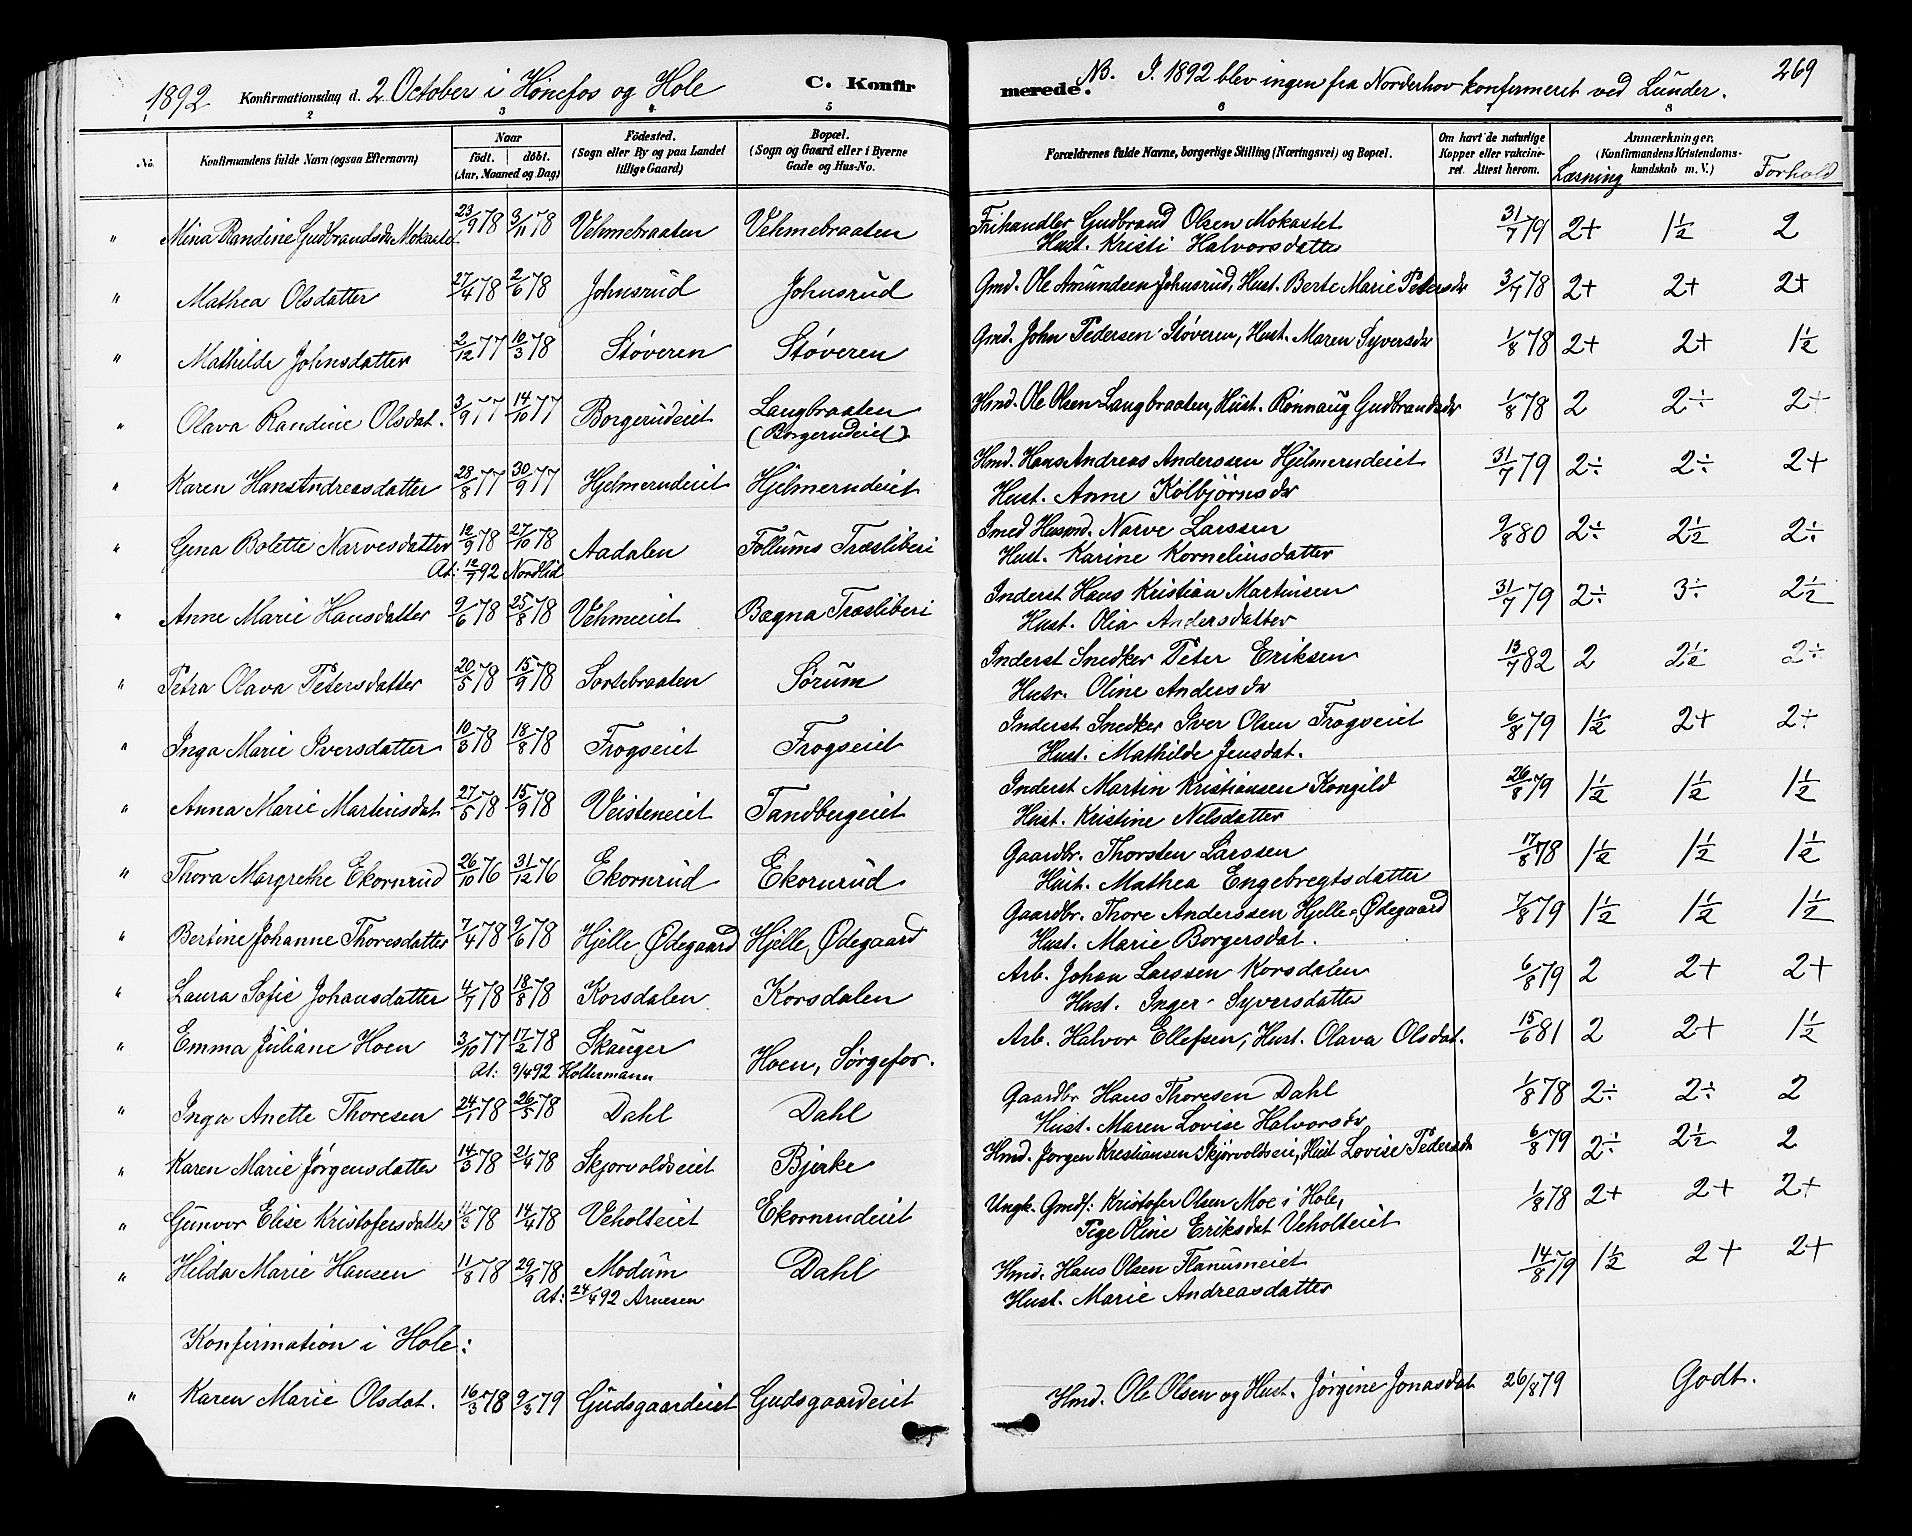 1892 Konfirmationsdag d. 2 October i Hönefos og Hole C. Konfirmerede. NB. I 1892 blev ingen fra Norderhov konfirmeret ved Lunder. 269
No. Konfirmandens fulde Navn (ogsaa Efternavn) Naar födt. döbt. (Aar, Maaned og Dag) Födested. (Sogn eller By og paa Landet tillige Gaard) Bopæl. (Sogn og Gaard eller i Byerne Gade og Hus-No. Forældrenes fulde Navne, borgerlige Stilling (Næringsvei) og Bopæl. Om havt de naturlige Kopper eller vakcineret. Attest herom. Anmærkninger. (Konfirmandens Kristendomskundskab m. V.) Læsning Forhold
" Mina Randine Gudbrandsdr Mokastet 23/9 78 3/11 78 Vehmebraaten Vehmebraaten Frihandler Gudbrand Olsen Mokastet 31/7 79 2+ 1½ 2
Hust. Kristi Halvorsdatter
" Mathea Olsdatter 27/4 78 2/6 78 Johnsrud Johnsrud Gmd. Ole Amundsen Johnsrud, Hust. Berte Marie Pedersdr 3/7 78 2+ 2+ 2+
" Mathilde Johnsdatter 2/12 77 10/3 78 Støveren Støveren Gmd. John Pedersen Støveren, Hust. Maren Syversdr 1/8 78 2+ 2+ 1½
" Olava Randine Olsdat. 3/9 77 14/10 77 Borgerudeiet Langbraaten (Borgerudeiet) Hmd. Ole Olsen Langbraaten, Hust. Rönnaug Gudbrandsdr 1/8 78 2 2÷ 2+
" Karen HansAndreasdatter 28/8 77 30/9 77 Hjelmerudeiet Hjelmerudeiet Hmd. Hans Andreas Anderssen Hjelmerudeiet 31/7 79 2÷ 2÷ 2+
Hust. Anne Kolbjørnsdr
" Gina Bolette Narvesdatter 12/9 78 27/10 78 Aadalen Follums Træsliberi Smed Husmd. Narve Larssen 9/8 80 2÷ 2½ 2÷
At: 12/7 92 Nordlid Hust. Karine Korneliusdatter
" Anne Marie Hansdatter 9/6 78 25/8 78 Vehmeiet Bagna Træsliberi Inderst Hans Kristian Martinsen 31/7 79 2÷ 3÷ 2½
Hust. Olia Andersdatter
" Petra Olava Petersdatter 20/5 78 15/9 78 Sortebraaten Sørum Inderst Snedker Peter Eriksen 13/7 82 2 2½ 2÷
Hustr. Oline Andersdr
" Inga Marie Iversdatter 10/3 78 18/8 78 Frogseiet Frogseiet Inderst Snedker Iver Olsen Frogseiet 6/8 79 1½ 2+ 2÷
Hust. Mathilde Jensdat.
" Anna Marie Martinsdat 27/5 78 15/9 78 Veisteneiet Tandbergeiet Inderst Martin Kristiansen Kongild 26/8 79 1½ 1½ 1½
Hust. Kristine Nilsdatter
" Thora Margrethe Ekornrud 26/10 76 31/12 76 Ekornrud Ekornrud Gaardbr. Thorsten Larssen 17/8 78 1½ 1½ 1½
Hust. Mathea Engebregtsdatter
" Bertine Johanne Thoresdatter 7/4 78 9/6 78 Hjelle Ødegaard Hjelle, Ødegaard Gaardbr. Thore Anderssen Hjelle-Ødegaard 7/8 79 1½ 1½ 1½
Hust. Marie Borgersdat.
" Laura Sofie Johansdatter 4/7 78 18/8 78 Korsdalen Korsdalen Arb. Johan Larssen Korsdalen 6/8 79 2 2+ 2+
Hust. Inger Syversdatter
" Emma Juliane Hoen 3/10 77 17/2 78 Skauger Hoen, Sørgefos. Arb. Halvor Ellefsen, Hust. Olava Olsdat. 15/6 81 2 2+ 1½
At: 9/4 92 Holtermann
" Inga Anette Thoresen 24/1 78 26/5 78 Dahl Dahl Gaardbr Hans Thoresen Dahl 1/8 78 2÷ 2÷ 2
Hust. Maren Lovise Halvorsdr
" Karen Marie Jørgensdatter 14/3 78 21/4 78 Skjørvoldseiet Bjerke Hmd. Jørgen Kristiansen Skjørvoldsei, Hust Lovise Pedersdr 6/8 79 2÷ 2½ 2
" Gunvor Elise Kristofersdatter 11/3 78 14/4 78 Veholteiet Ekornrudeiet Ungk. Gmdf: Kristofer Olsen Moe i Hole, 1/8 78 2+ 2+ 2+
Pige Oline Eriksdat Veholteiet
" Hilda Marie Hansen 11/8 78 29/9 78 Modum Dahl Hmd. Hans Olsen Flanumeiet 14/8 79 1½ 2+ 2+
At: 24/4 92 Arnesen Hust. Marie Andreasdatter
Konfirmation i Hole:
" Karen Marie Olsdat. 16/3 78 9/3 79 Gudsgaardeiet Gudsgaardeiet Hmd. Ole Olsen og Hust. Jørgine Jonasdat 26/8 79 Godt.